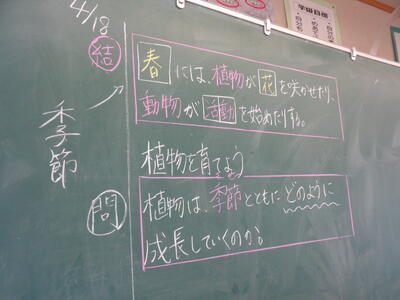 4/18
結
春には、植物が花を咲かせたり、
動物が活動を始めたりする。
季節
植物を育てよう
問
植物は、季節とともにどのように
成長していくのか。
学習目標